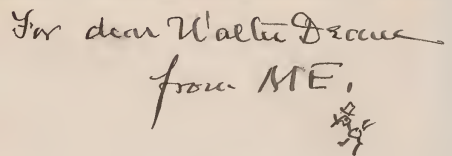 For dear Walter Deane
from ME.